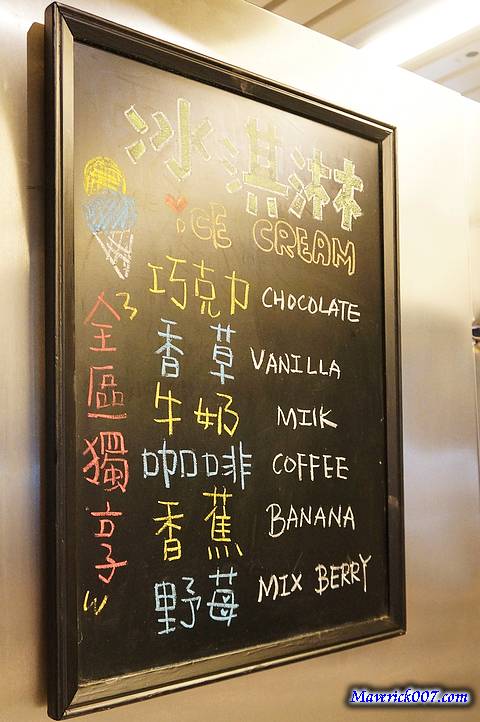 冰淇淋
iCE CREAM
巧克力 CHOCOLATE
香草 VANILLA
牛奶 MilK
咖啡 COFFEE
香蕉 BANANA
野莓 MIX BERRY
全區獨享
Maverick007.com